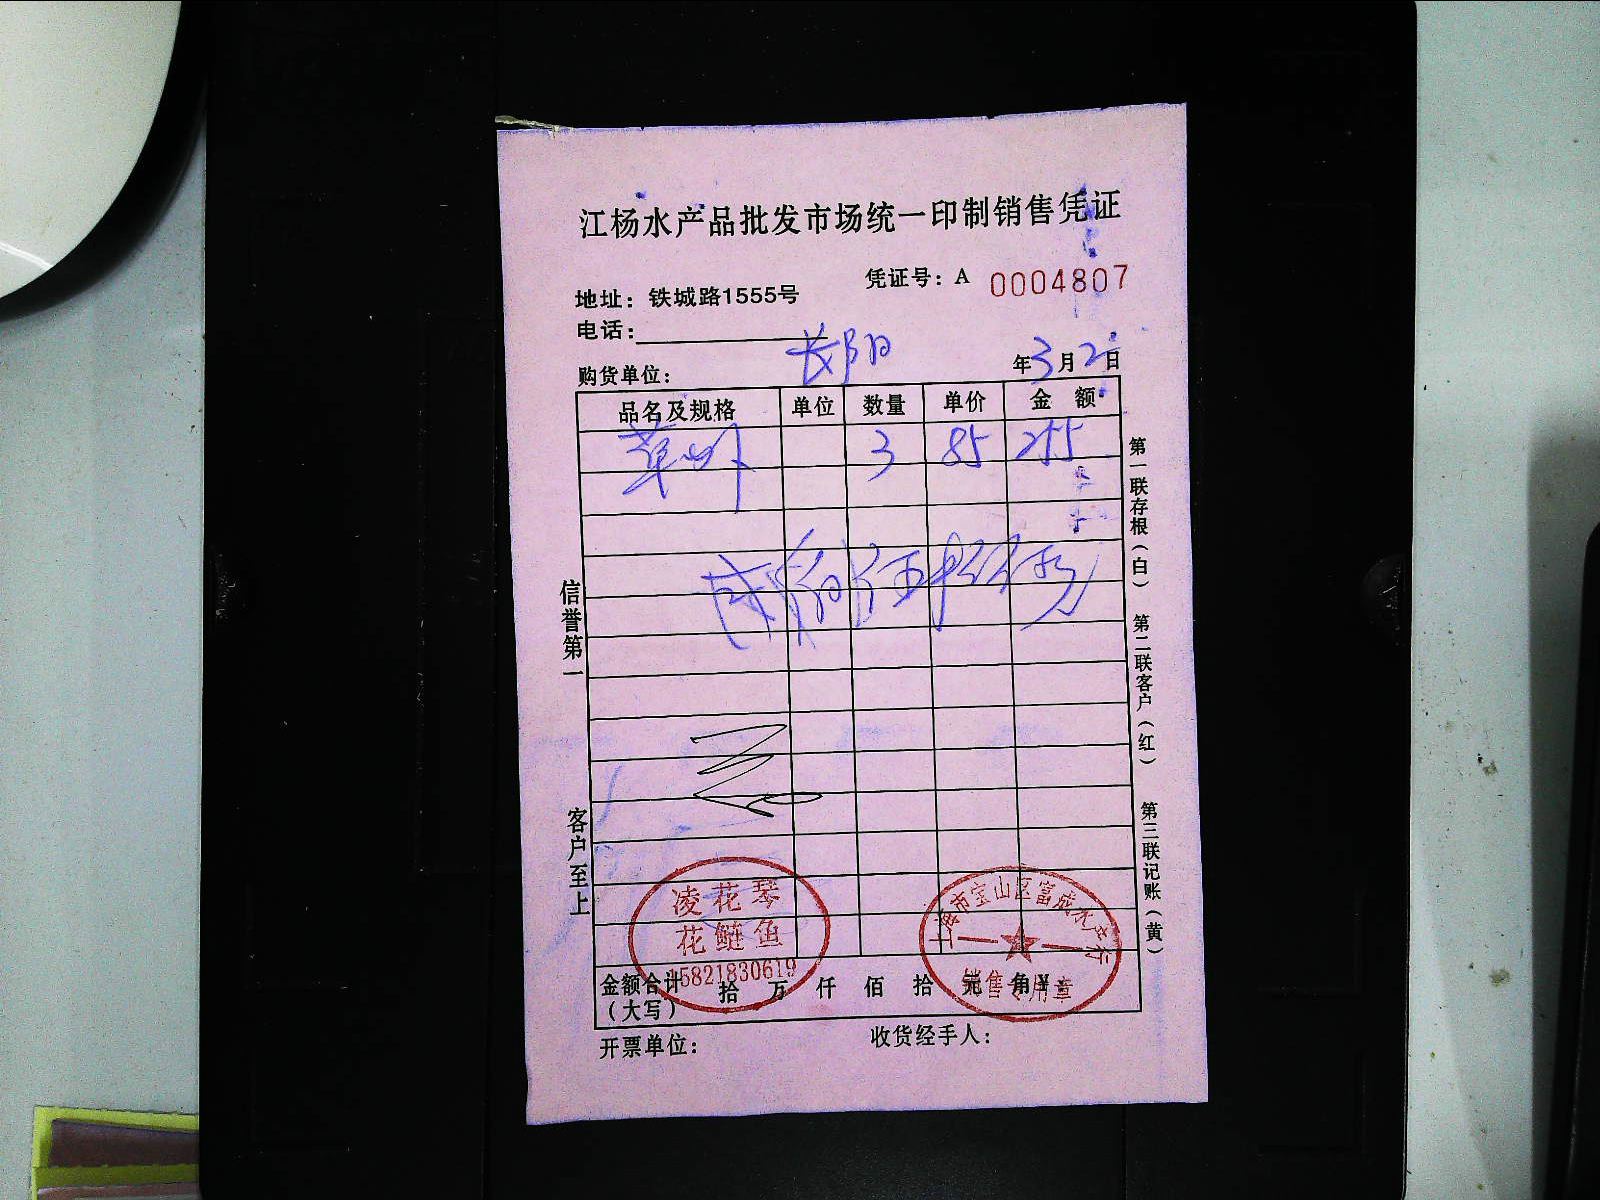 江杨水产品批发市场统一印制销售凭证
凭证号：A 0004807
地址：铁城路1555号
电话：
购货单位： 长阳 年3月2日
品名及规格 单位 数量 单价 金 额
3 85 255
信誉第一
客户至上
第一联存根（白） 第二联客户（红） 第三联记账（黄）
凌花琴
花鲢鱼
15821830619
上海市宝山区富成水产行
销售专用章
金额合计（大写） 拾 万 仟 佰 拾 元 角
开票单位： 收货经手人：